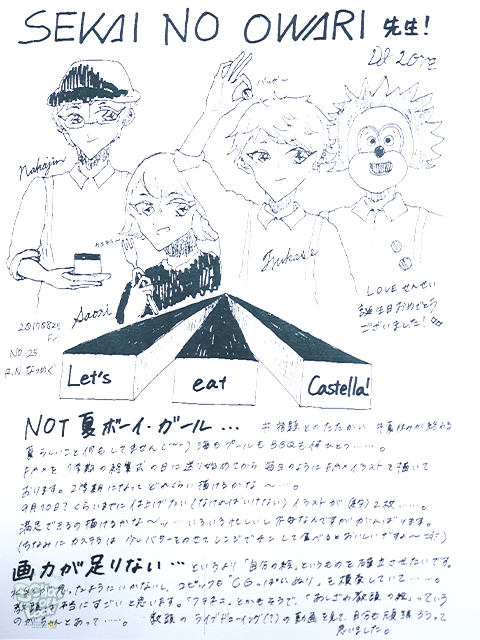 SEKAI NO OWARI 先生!
Nakajin
Saori
Fukase
LOVE せんせい
誕生日おめでとう
ございました!
20170825
Fri
NO.25
R.N.なつめぐ
Let's eat Castella!
NOT 夏ボーイ・ガール … #宿題とのたたかい #夏休みが終わる
夏らしいこと何もしてませんじ〜) 海もプールもBBQも何ひとつ……。
FAXを1学期の終業式の日に送り始めてから毎日のようにFAXイラストを描いて
おります。2学期になってどれくらい描けるかな〜…。
9月10日くらいまでに仕上げたい(なければいけない)イラストが(約)2枚……。
満足できるの描けるかな〜ッ…いろいろ忙しいし不安なんですががんばります。
(ちなみにカステラは バターをのせてレンジでチンして食べるとおいしいですよ〜
画力が足りない… というより「自分の絵」というものを確立させたいです。
思ったようにいかないし、コピックも「CGっぽいぬり」を模索していて……。
教頭は本当にすごいと思います。 とかもそうで、「あしざわ教頭の絵」っていう
のがちゃんとあって……。 教頭のライブドローイング(?)の動画を見て、自分も頑張ろうって
思いました。